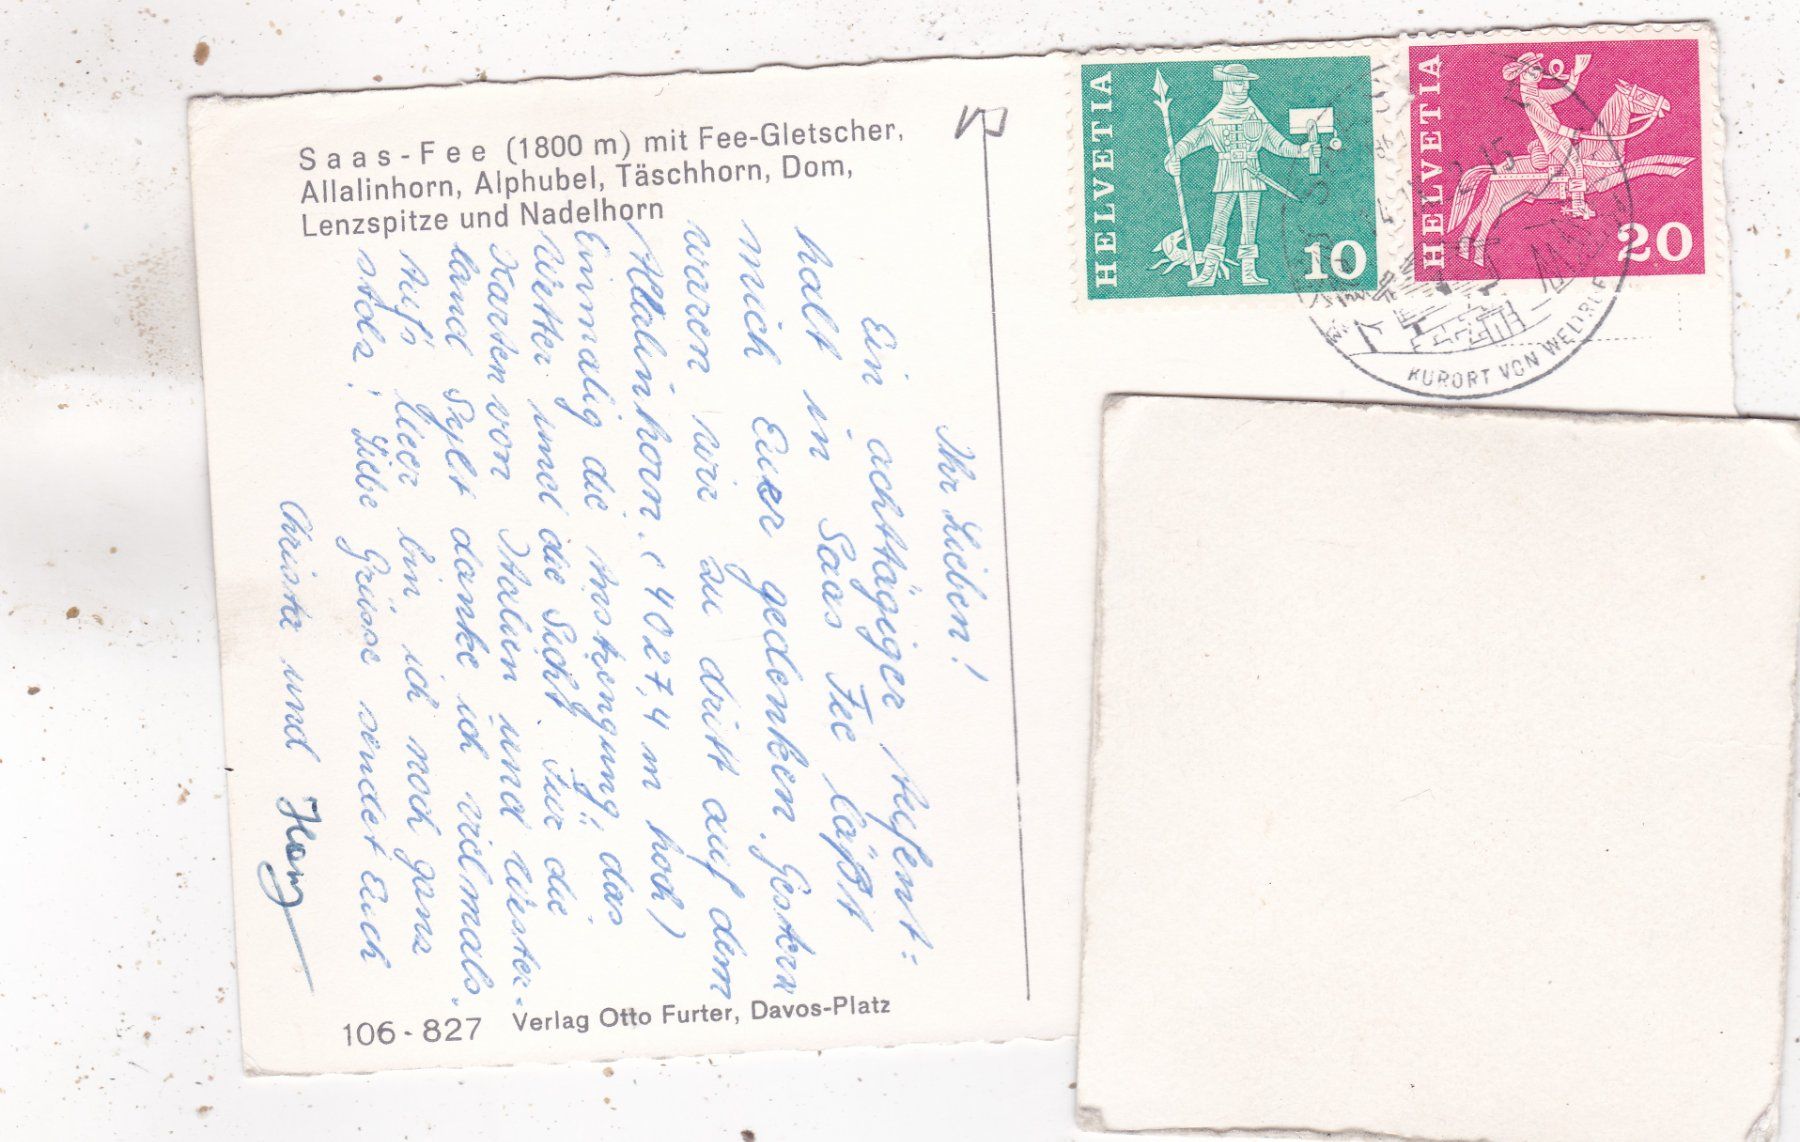 Saas-Fee (1800 m) mit Fee-Gletscher,
Allalinhorn, Alphubel, Täschhorn, Dom,
Lenzspitze und Nadelhorn
HELVETIA
10
HELVETIA
20
KURORT VON WELTRUF
Ihr Lieben!
Ein achttägiger Aufent-
halt in Saas Fee läßt
mich Euer gedenken. Gestern
waren wir zu dritt auf dem
Allalinhorn. (4027,4 m hoch)
Einmalig die Anstrengung, das
Wetter und die Sicht. Für die
Karten von Italien und Wester-
land Sylt danke ich vielmals.
Auf's Meer bin ich noch ganz
stolz! Liebe Grüsse sendet Euch
Christa und
106-827 Verlag Otto Furter, Davos-Platz